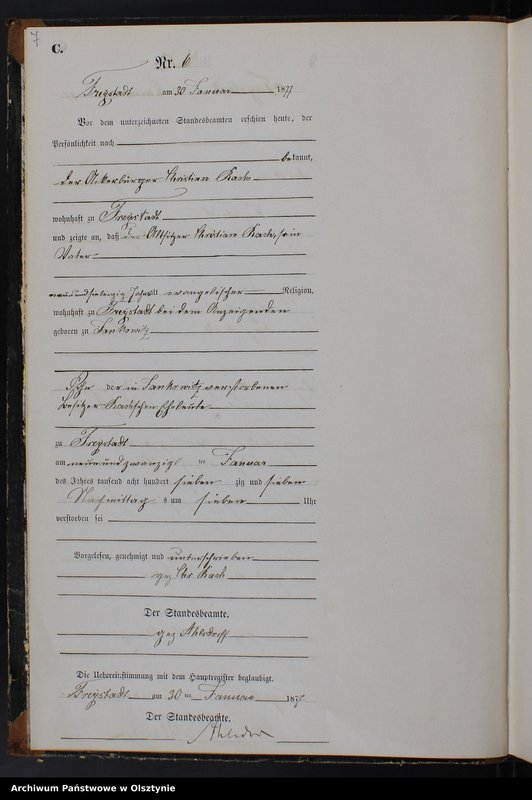 7
C.
Nr. 6
Freystadt am 30 Januar 1877
Vor dem unterzeichneten Standesbeamten erschien heute, der
Persönlichkeit nach
bekannt,
der Ackerbürger Christian Kach
wohnhaft zu Freystadt
und zeigte an, daß der Altsitzer Christian Kach, sein
Vater
neunundsiebenzig Jahre alt evangelischer Religion,
wohnhaft zu Freystadt bei dem Anzeigenden
geboren zu
Sohn der in verstorbenen
Besitzer Eheleute
zu Freystadt
am neunundzwanzigs ten Januar
des Jahres tausend acht hundert sieben zig und sieben
Nachmittag s um sieben Uhr
verstorben sei
Vorgelesen, genehmigt und unterschrieben
gez Chr. Kach
Der Standesbeamte.
gez Ahlsdorff
Die Uebereinstimmung mit dem Hauptregister beglaubigt.
Freystadt am 30 ten Januar 1877
Der Standesbeamte.
Archiwum Państwowe w Olsztynie